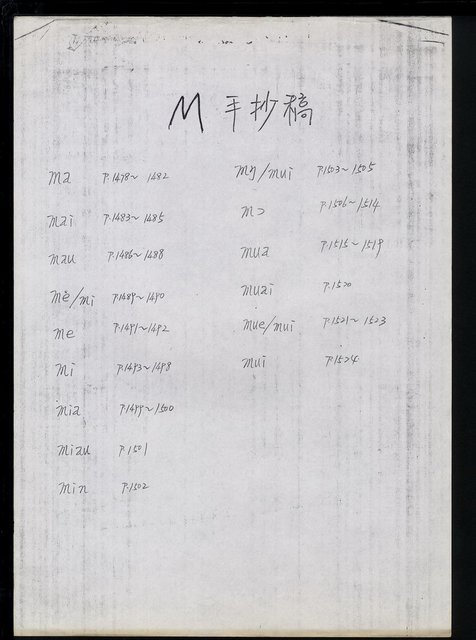 M 手抄稿
ma P.1478~1482
mai P.1483~1485
mau P.1486~1488
mè/mi P.1489~1490
me P.1491~1492
mi P.1493~1498
mia P.1499~1500
miau P.1501
min P.1502
P.1503~1505
P.1506~1514
mua P.1515~1519
muai P.1520
mue/mui P.1521~1523
mui P.1524